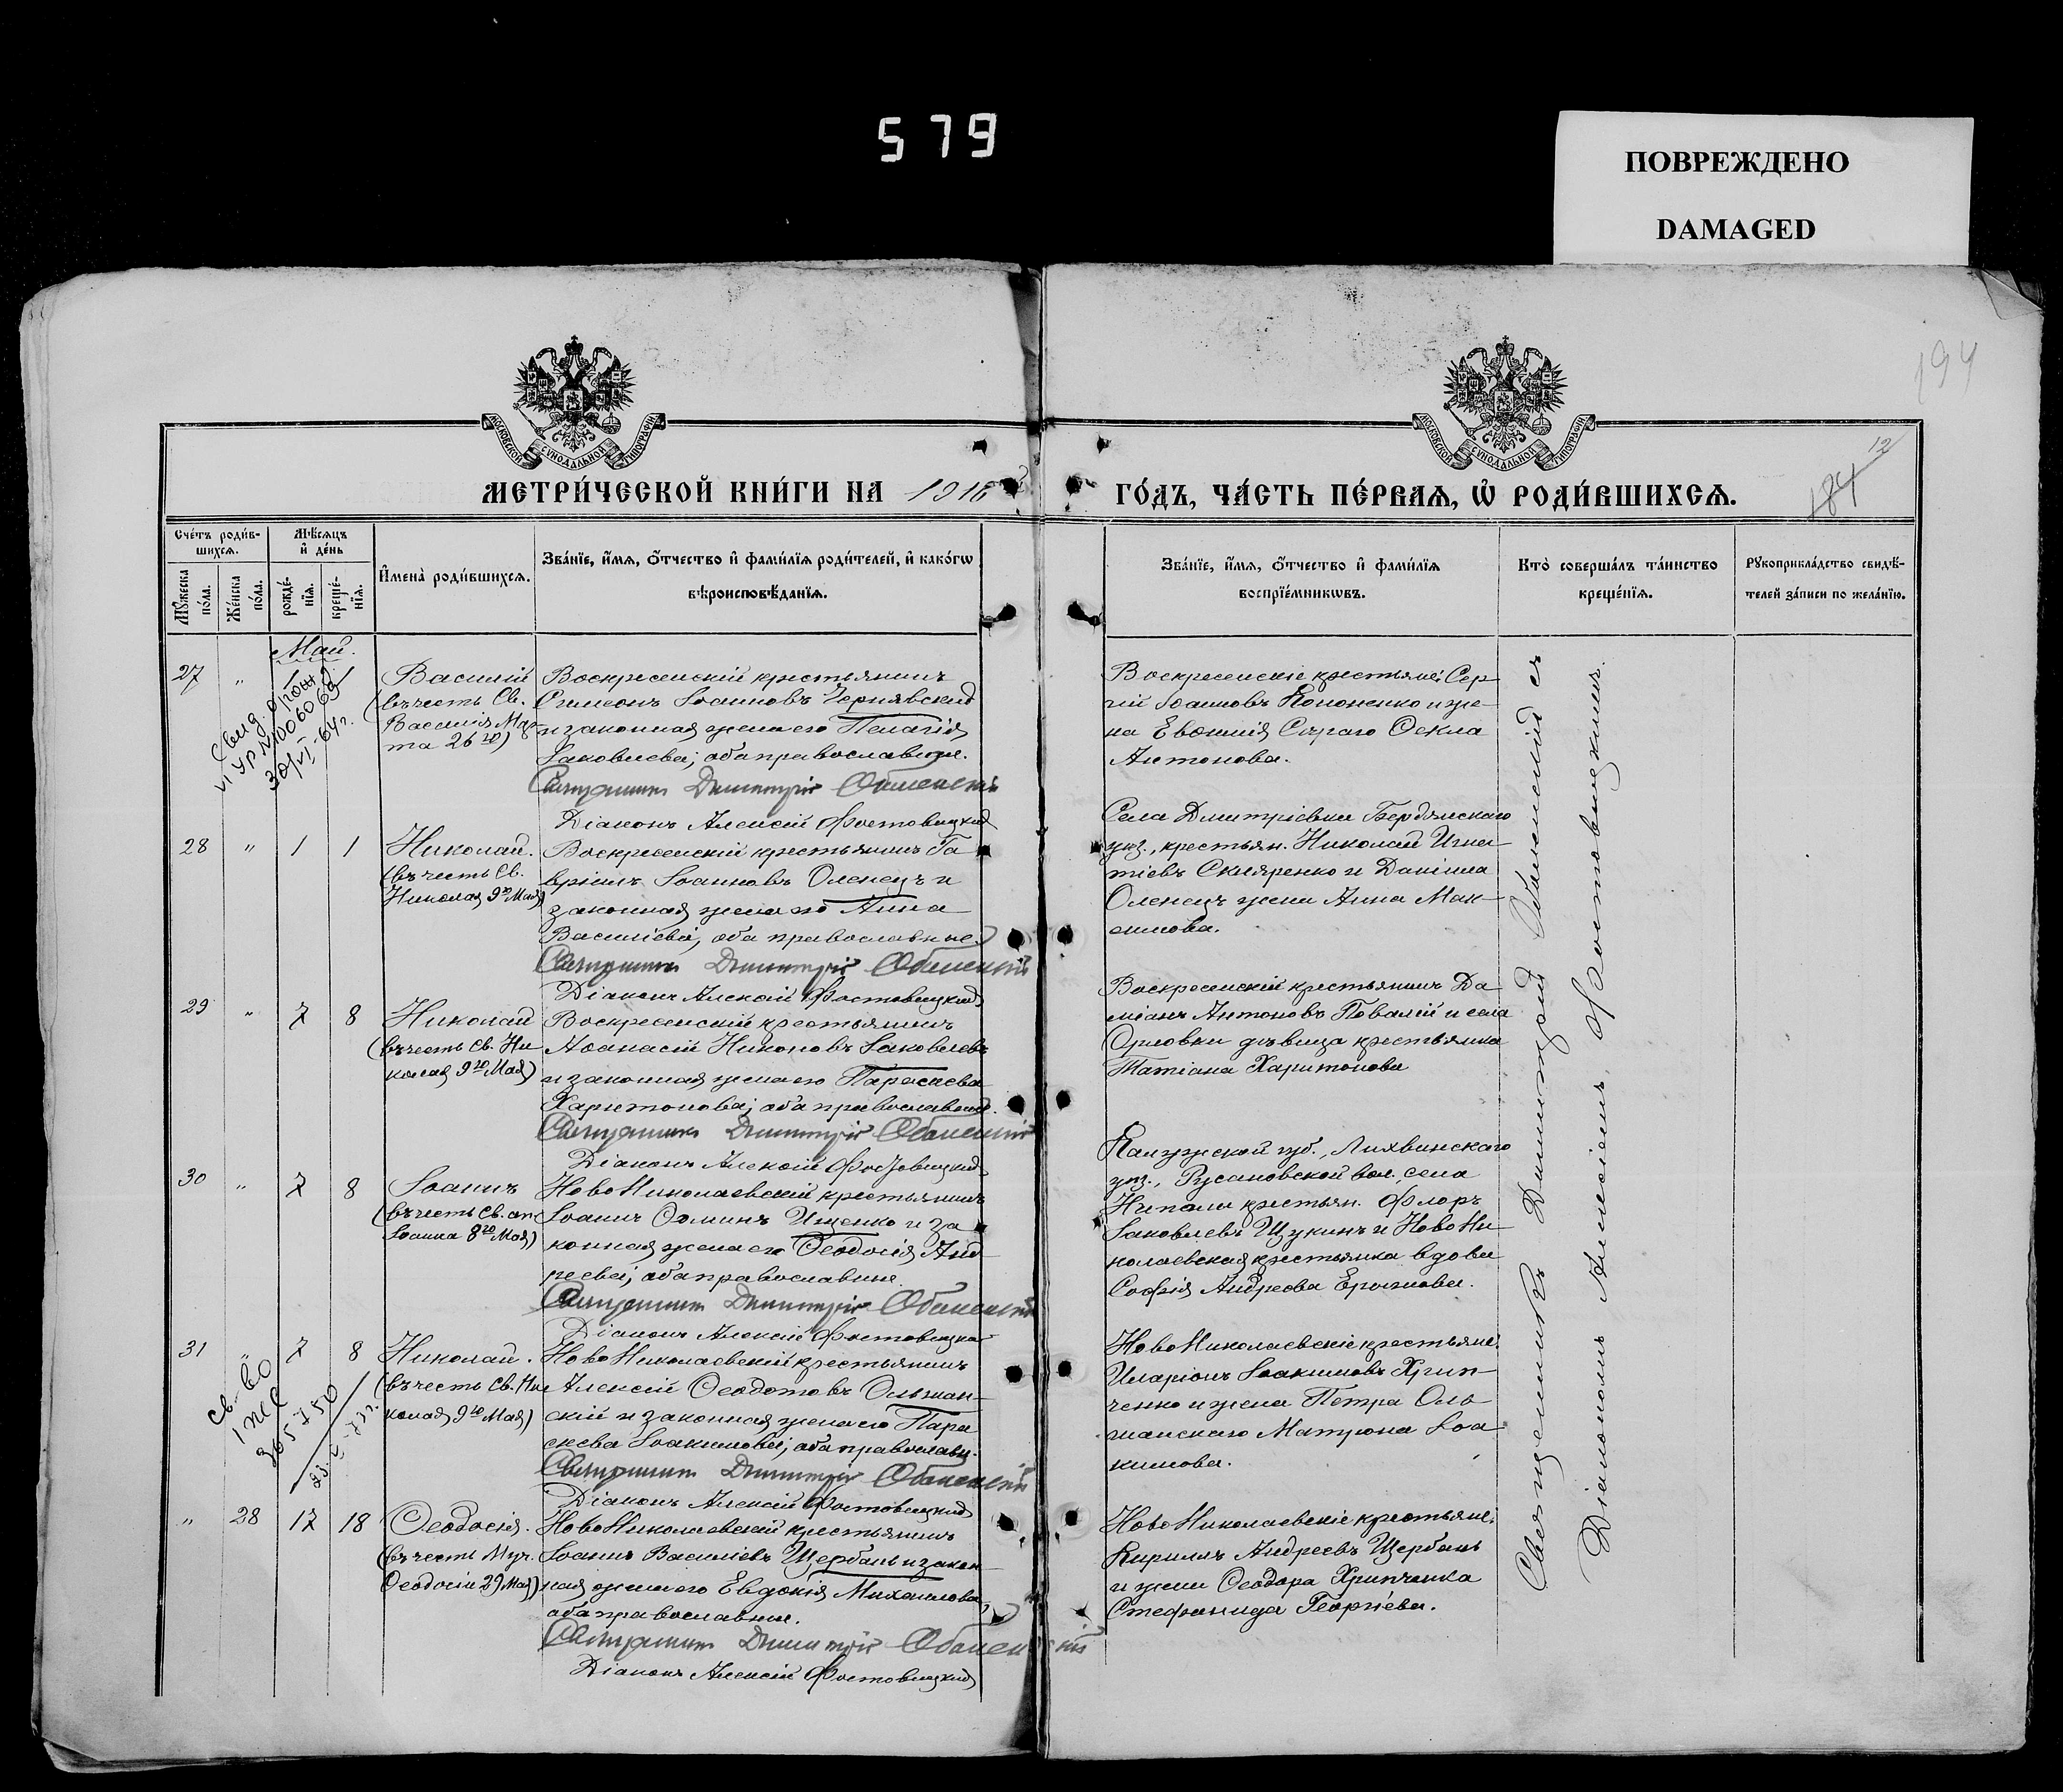 579
ПОВРЕЖДЕНО
DAMAGED
194
МОСКОВСКОЙ СУНОДАЛЬНОЙ ТИПОГРАФІИ
МОСКОВСКОЙ СУНОДАЛЬНОЙ ТИПОГРАФІИ
12
184
МЕТРИ́ЧЕСКОЙ КНИ́ГИ НА 1916
ГО́ДЪ, ЧА́СТЬ ПЕ́РВАѦ, Ѡ҆ РОДИ́ВШИХСѦ.
Сче́тъ роди́в-
шихсѧ.
Мѣ́сѧцъ
и҆ де́нь
Мꙋ́жеска
по́ла.
Же́нска
по́ла.
рожде́-
нїѧ.
креще́-
нїѧ.
И҆мена̀ роди́вшихсѧ.
Зва́нїе, и҆́мѧ, ѻ҆́тчество и҆ фами́лїѧ роди́телей, и҆ како́гѡ
вѣроисповѣ́данїѧ.
Зва́нїе, и҆́мѧ, ѻ҆́тчество и҆ фами́лїѧ
воспрїе́мникѡвъ.
Кто̀ соверша́лъ та́инство
креще́нїѧ.
Рꙋкоприкла́дство свидѣ́-
телей за́писи по жела́нїю.
Май.
27 " 1 1
Василій
(въ честь Св.
Василія Мар-
та 26го)
Воскресенскій крестьянинъ
Симеонъ Іоанновъ Чернявскій
и законная жена его Пелагія
Іаковлева; оба православные.
Священникъ Димитрій Обленскій
Діаконъ Алексій Фостовицкій
Воскресенскіе крестьяне: Сер-
гій Іоанновъ Кононенко и же-
на Евѳимія Сѣраго Ѳекла
Антонова.
Свид. о рожд.
И УР №1006069
30/VI-64г.
28 " 1 1
Николай.
(въ честь Св.
Николая 9го Мая)
Воскресенскій крестьянинъ Га-
вріилъ Іоанновъ Оленецъ и
законная жена его Анна
Василіева, оба православные.
Священникъ Димитрій Обленскій
Діаконъ Алексій Фостовицкій
Села Дмитріевки Бердянскаго
уѣз., крестьян. Николай Игна-
тіевъ Скляренко и Даніила
Оленецъ жена Анна Мак-
симова.
29 " 7 8
Николай
(въ честь Св. Ни-
колая 9го Мая)
Воскресенскій крестьянинъ
Аѳанасій Никоновъ Іаковлевъ
и законная жена его Параскева
Харитонова; оба православные.
Священникъ Димитрій Обленскій
Діаконъ Алексій Фостовицкій
Воскресенскій крестьянинъ Да-
міанъ Антоновъ Повалій и села
Орловки дѣвица крестьянка
Татіана Харитонова
30 " 7 8
Іоаннъ
(въ честь Св. ап.
Іоанна 8го Мая)
НовоНиколаевскій крестьянинъ
Іоаннъ Ѳоминъ Ищенко и за-
конная жена его Ѳеодосія Анд-
реева; оба православные.
Священникъ Димитрій Обленскій
Діаконъ Алексій Фостовицкій
Калужской губ., Лихвинскаго
уѣз., Русановской вол. села
крестьян. Флоръ
Іаковлевъ Щукинъ и НовоНи-
колаевская крестьянка вдова
Софія Андреева
31 " 7 8
Николай.
(въ честь Св. Ни-
колая 9го Мая)
НовоНиколаевскій крестьянинъ
Алексій Ѳеодотовъ Ольшан-
скій и законная жена его Пара-
скева Іоакимова; оба православн.
Священникъ Димитрій Обленскій
Діаконъ Алексій Фостовицкій
НовоНиколаевскіе крестьяне:
Иларіонъ Іоакимовъ Хрип-
ченко и жена Петра Оль-
шанскаго Матрона Іоа-
кимова.
Св-во
365750
" 28 17 18
Ѳеодосія.
(въ честь Муч.
Ѳеодосіи 29 Мая)
НовоНиколаевскій крестьянинъ
Іоаннъ Василіевъ Щербань и закон-
ная жена его Евдокія Михаилова,
оба православные.
Священникъ Димитрій Обленскій
Діаконъ Алексій Фостовицкій
НовоНиколаевскіе крестьяне:
Кириллъ Андреевъ Щербань
и жена Ѳеодора Хрипченка
Стефанида Георгіева.
Священникъ Димитрій Обленскій съ
Діакономъ Алексіемъ Фостовицкимъ.